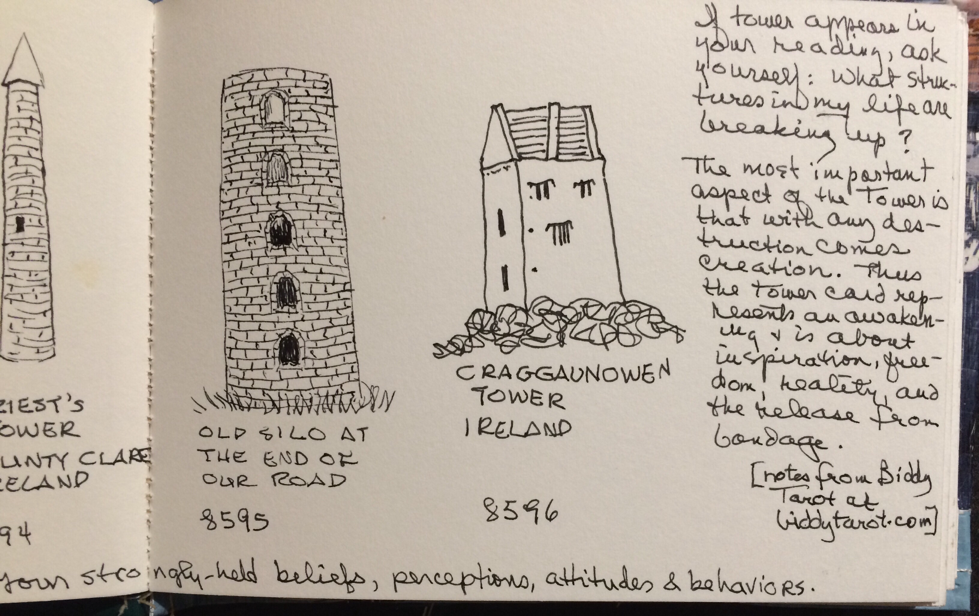 ZIEST'S
OWER
UNTY CLARE
RELAND
94
OLD SILO AT
THE END OF
OUR ROAD
8595
CRAGGAUNOWEN
TOWER
IRELAND
8596
If tower appears in
your reading, ask
yourself: what struc-
tures in my life are
breaking up?
The most important
aspect of the Tower is
that with any des-
truction comes
creation. Thus
the Tower card rep-
resents an awaken-
ing & is about
inspiration, free-
dom, reality, and
the release from
bondage.
[notes from Biddy
Tarot at
biddytarot.com]
your strongly-held beliefs, perceptions, attitudes & behaviors.